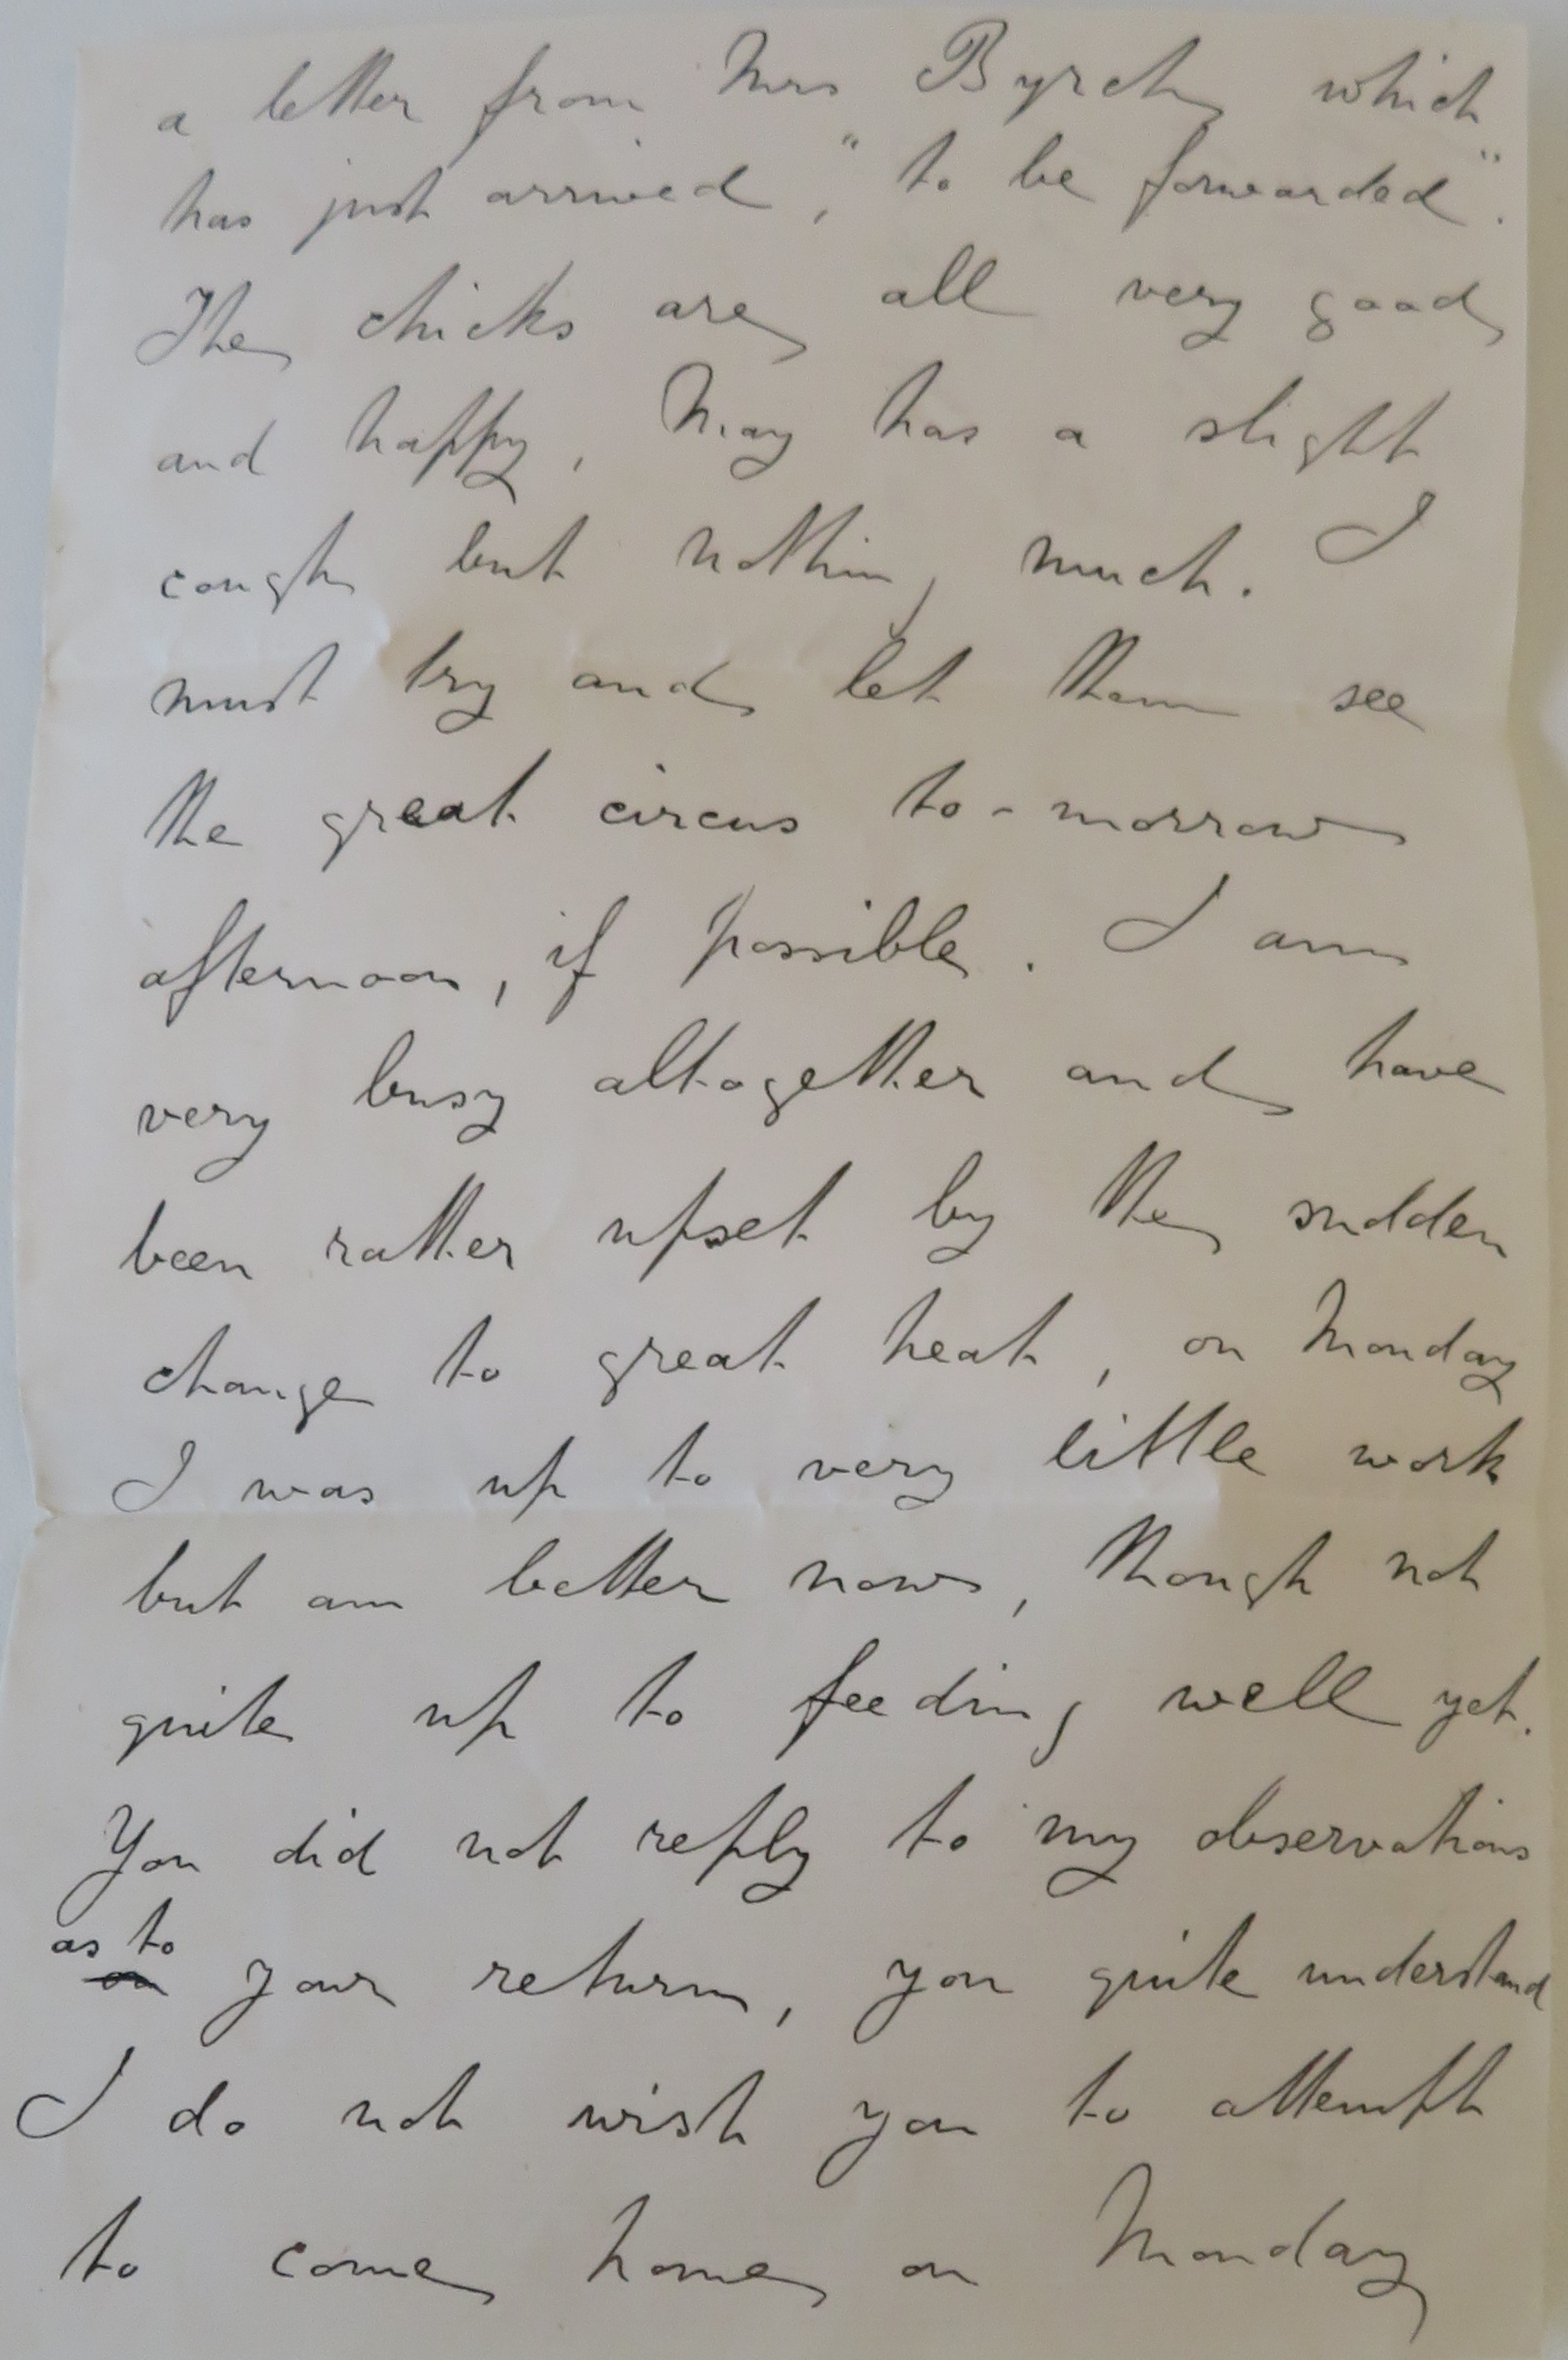 a letter from Mrs Byrch which
has just arrived, "to be forwarded".
The chicks are all very good
and happy, May has a slight
cough but nothing much. I
must try and let them see
the great circus to-morrow
afternoon, if possible. I am
very busy altogether and have
been rather upset by the sudden
change to great heat, on Monday
I was up to very little work
but am better now, though not
quite up to feeding well yet.
You did not reply to my observations
as to
on your return, you quite understand
I do not wish you to attempt
to come home on Monday